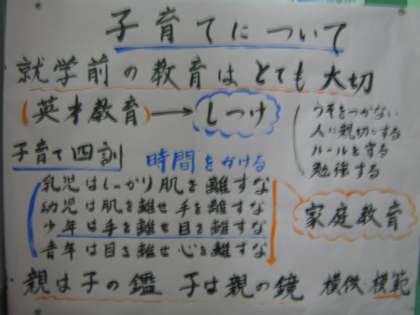 子育てについて
就学前の教育はとても大切
(英才教育)→しつけ
うそをつかない
人に親切にする
ルールを守る
勉強する
子育て四訓 時間をかける
乳児はしっかり肌を離すな
幼児は肌を離せ手を離すな
少年は手を離せ目を離すな
青年は目を離せ心を離すな
家庭教育
親は子の鑑 子は親の鏡 模倣 模範